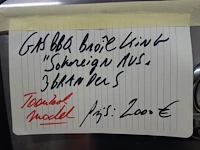 GASBBQ BROIL KING
"SOVEREIGN AUS.
3 BRANDERS
Toonbal
model
Prijs: 2000 €